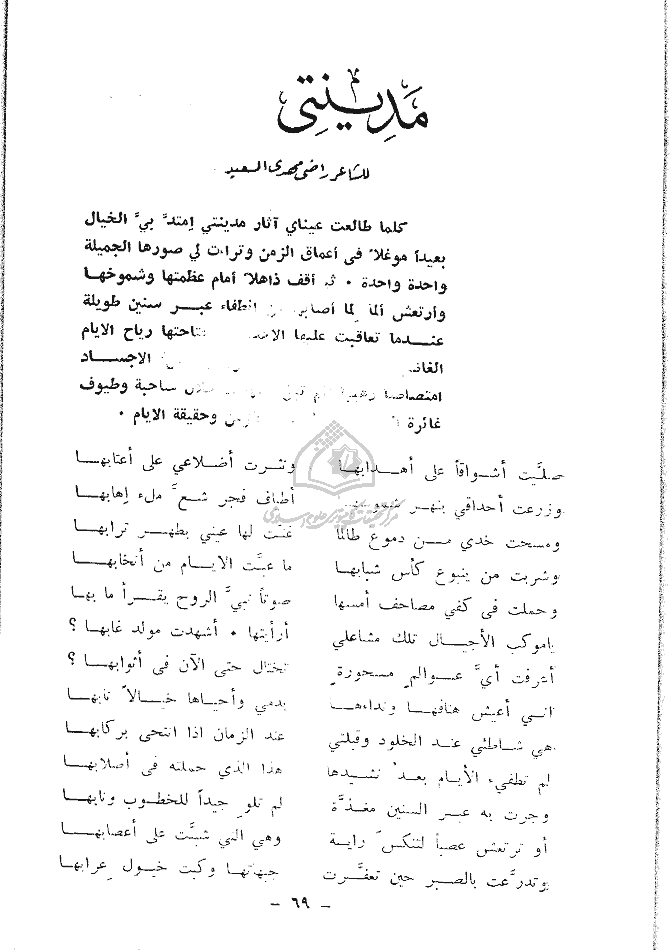 مَدِينتِي
للشاعر راضي مهدي السعيد
كلما طالعت عيناي آثار مدينتي إمتدَّ بيَ الخيال
بعيداً موغلاً في أعماق الزمن وتراءت لي صورها الجميلة
واحدة واحدة ٠ ثم أقف ذاهلاً أمام عظمتها وشموخها
وأرتعش ألماً لما أصابها من انطفاء عبر سنين طويلة
عندما تعاقبت عليها رياح الايام
الاجساد
امتصاصاً ساحبة وطيوف
غائرة وحقيقة الايام ٠
صلَّيت أشواقاً على أهدابها ونثرت أضلاعي على أعتابها
وزرعت أحداقي بنهر أطياف فجر شعَّ ملء إهابها
ومسحت خدي من دموع طالما غنت لها عيني بطهر ترابها
وشربت من ينبوع كأس شبابها ما عبَّت الايام من أنخابها
وحملت في كفي مصاحف أمسها صوتاً نبيَّ الروح يقرأ ما بها
ياموكب الأجيال تلك مشاعلي أرأيتها ٠ أشهدت مولد غابها ؟
أعرفت أيَّ عوالمٍ مسحورةٍ تختال حتى الآن في أثوابها ؟
اني أعيش هتافها ونداءها بدمي وأحياها خيالاً نابها
هي شاطئي عند الخلود وقبلتي عند الزمان اذا انتحى بركابها
لم تطفيء الأيام بعدُ نشيدها هذا الذي حملته في أصلابها
وجرت به عبر السنين مغذَّة لم تلوِ جيداً للخطوب ونابها
أو ترتعش عصباً لتنكس راية وهي التي شبَّت على أعصابها
وتدرَّعت بالصبر حين تعفَّرت جبهاتها وكبت خيول عرابها
- ٦٩ -